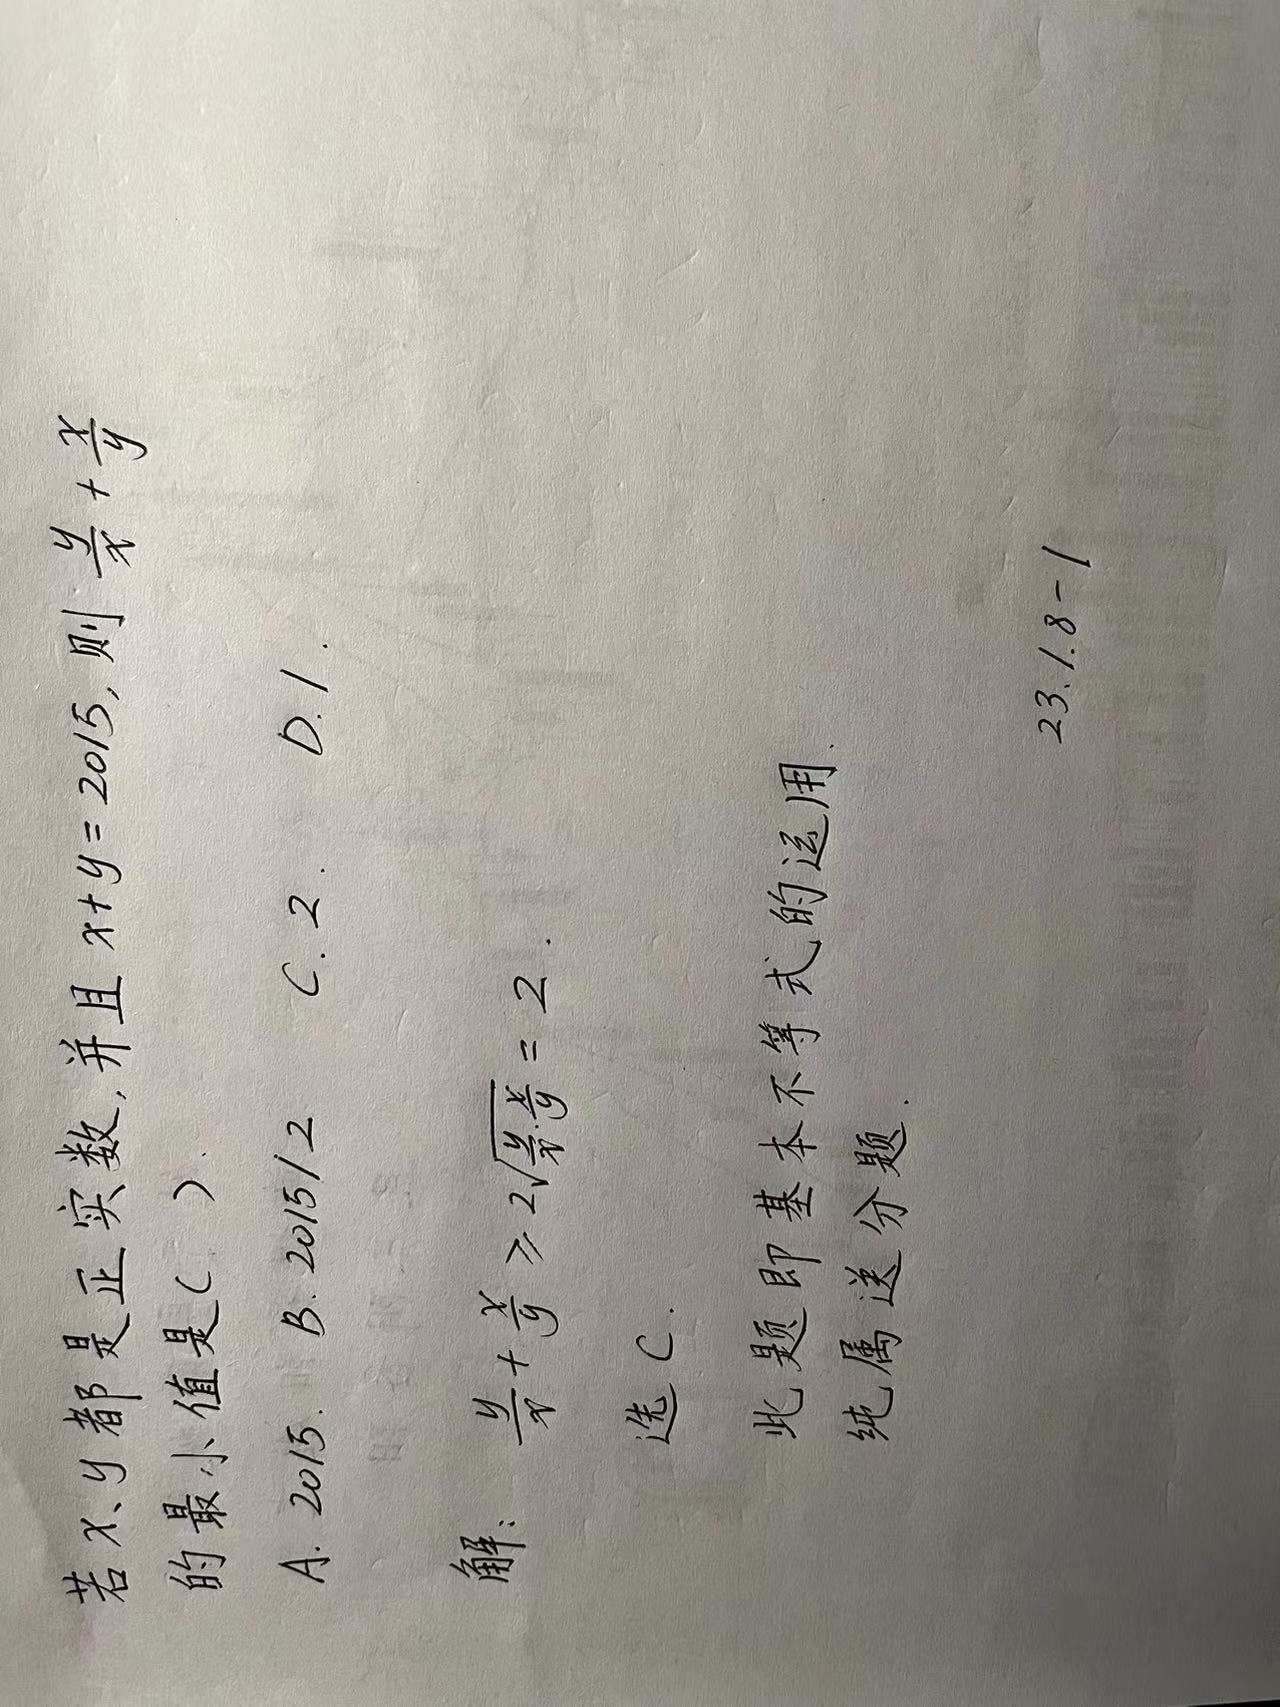 若x、y都是正实数,并且x+y=2015,则 y/x + x/y
的最小值是( ).
A. 2015. B. 2015/2 C. 2. D. 1.
解: y/x + x/y ≥ 2√(y/x · x/y) = 2.
选 C.
此题即基本不等式的运用.
纯属送分题.
23.1.8-1